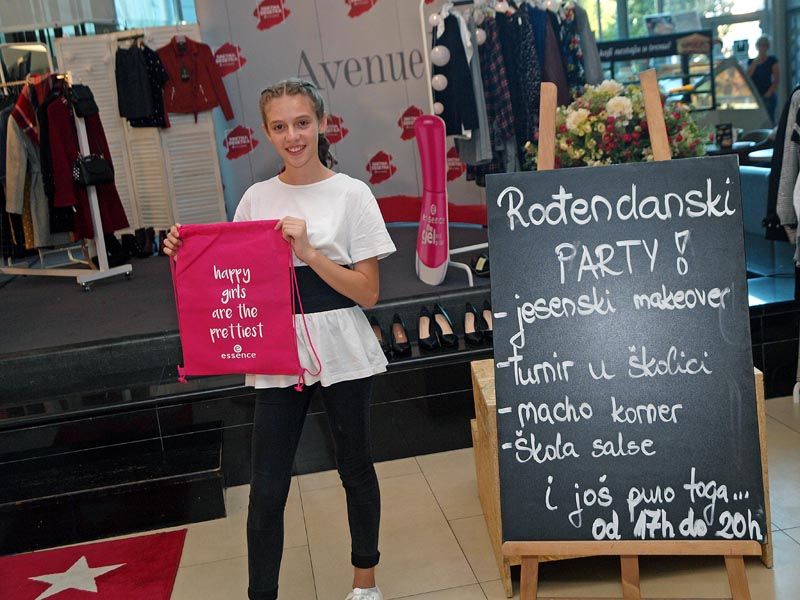 Avenue
happy
girls
are the
prettiest
essence
essence
the
gel
Rođendanski
PARTY!
- jesenski makeover
- turnir u školici
- macho korner
- škola salse
i još puno toga...
od 17h do 20h